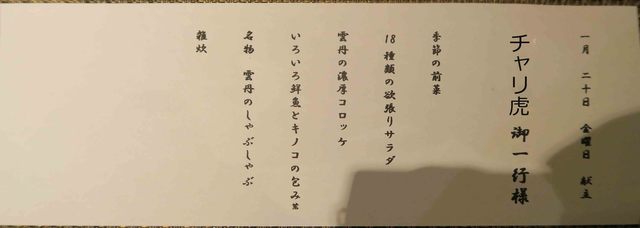 一月 二十日 金曜日 献立
チャリ虎 御一行様
季節の前菜
18種類の欲張りサラダ
雲丹の濃厚コロッケ
いろいろ鮮魚とキノコの包み蒸
名物 雲丹のしゃぶしゃぶ
雑炊